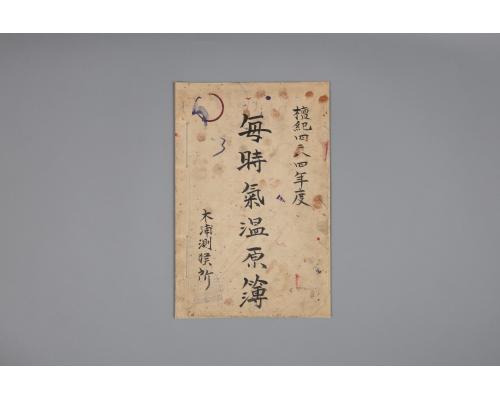 檀紀四二八四年度
每時氣温原簿
木浦測候所
3